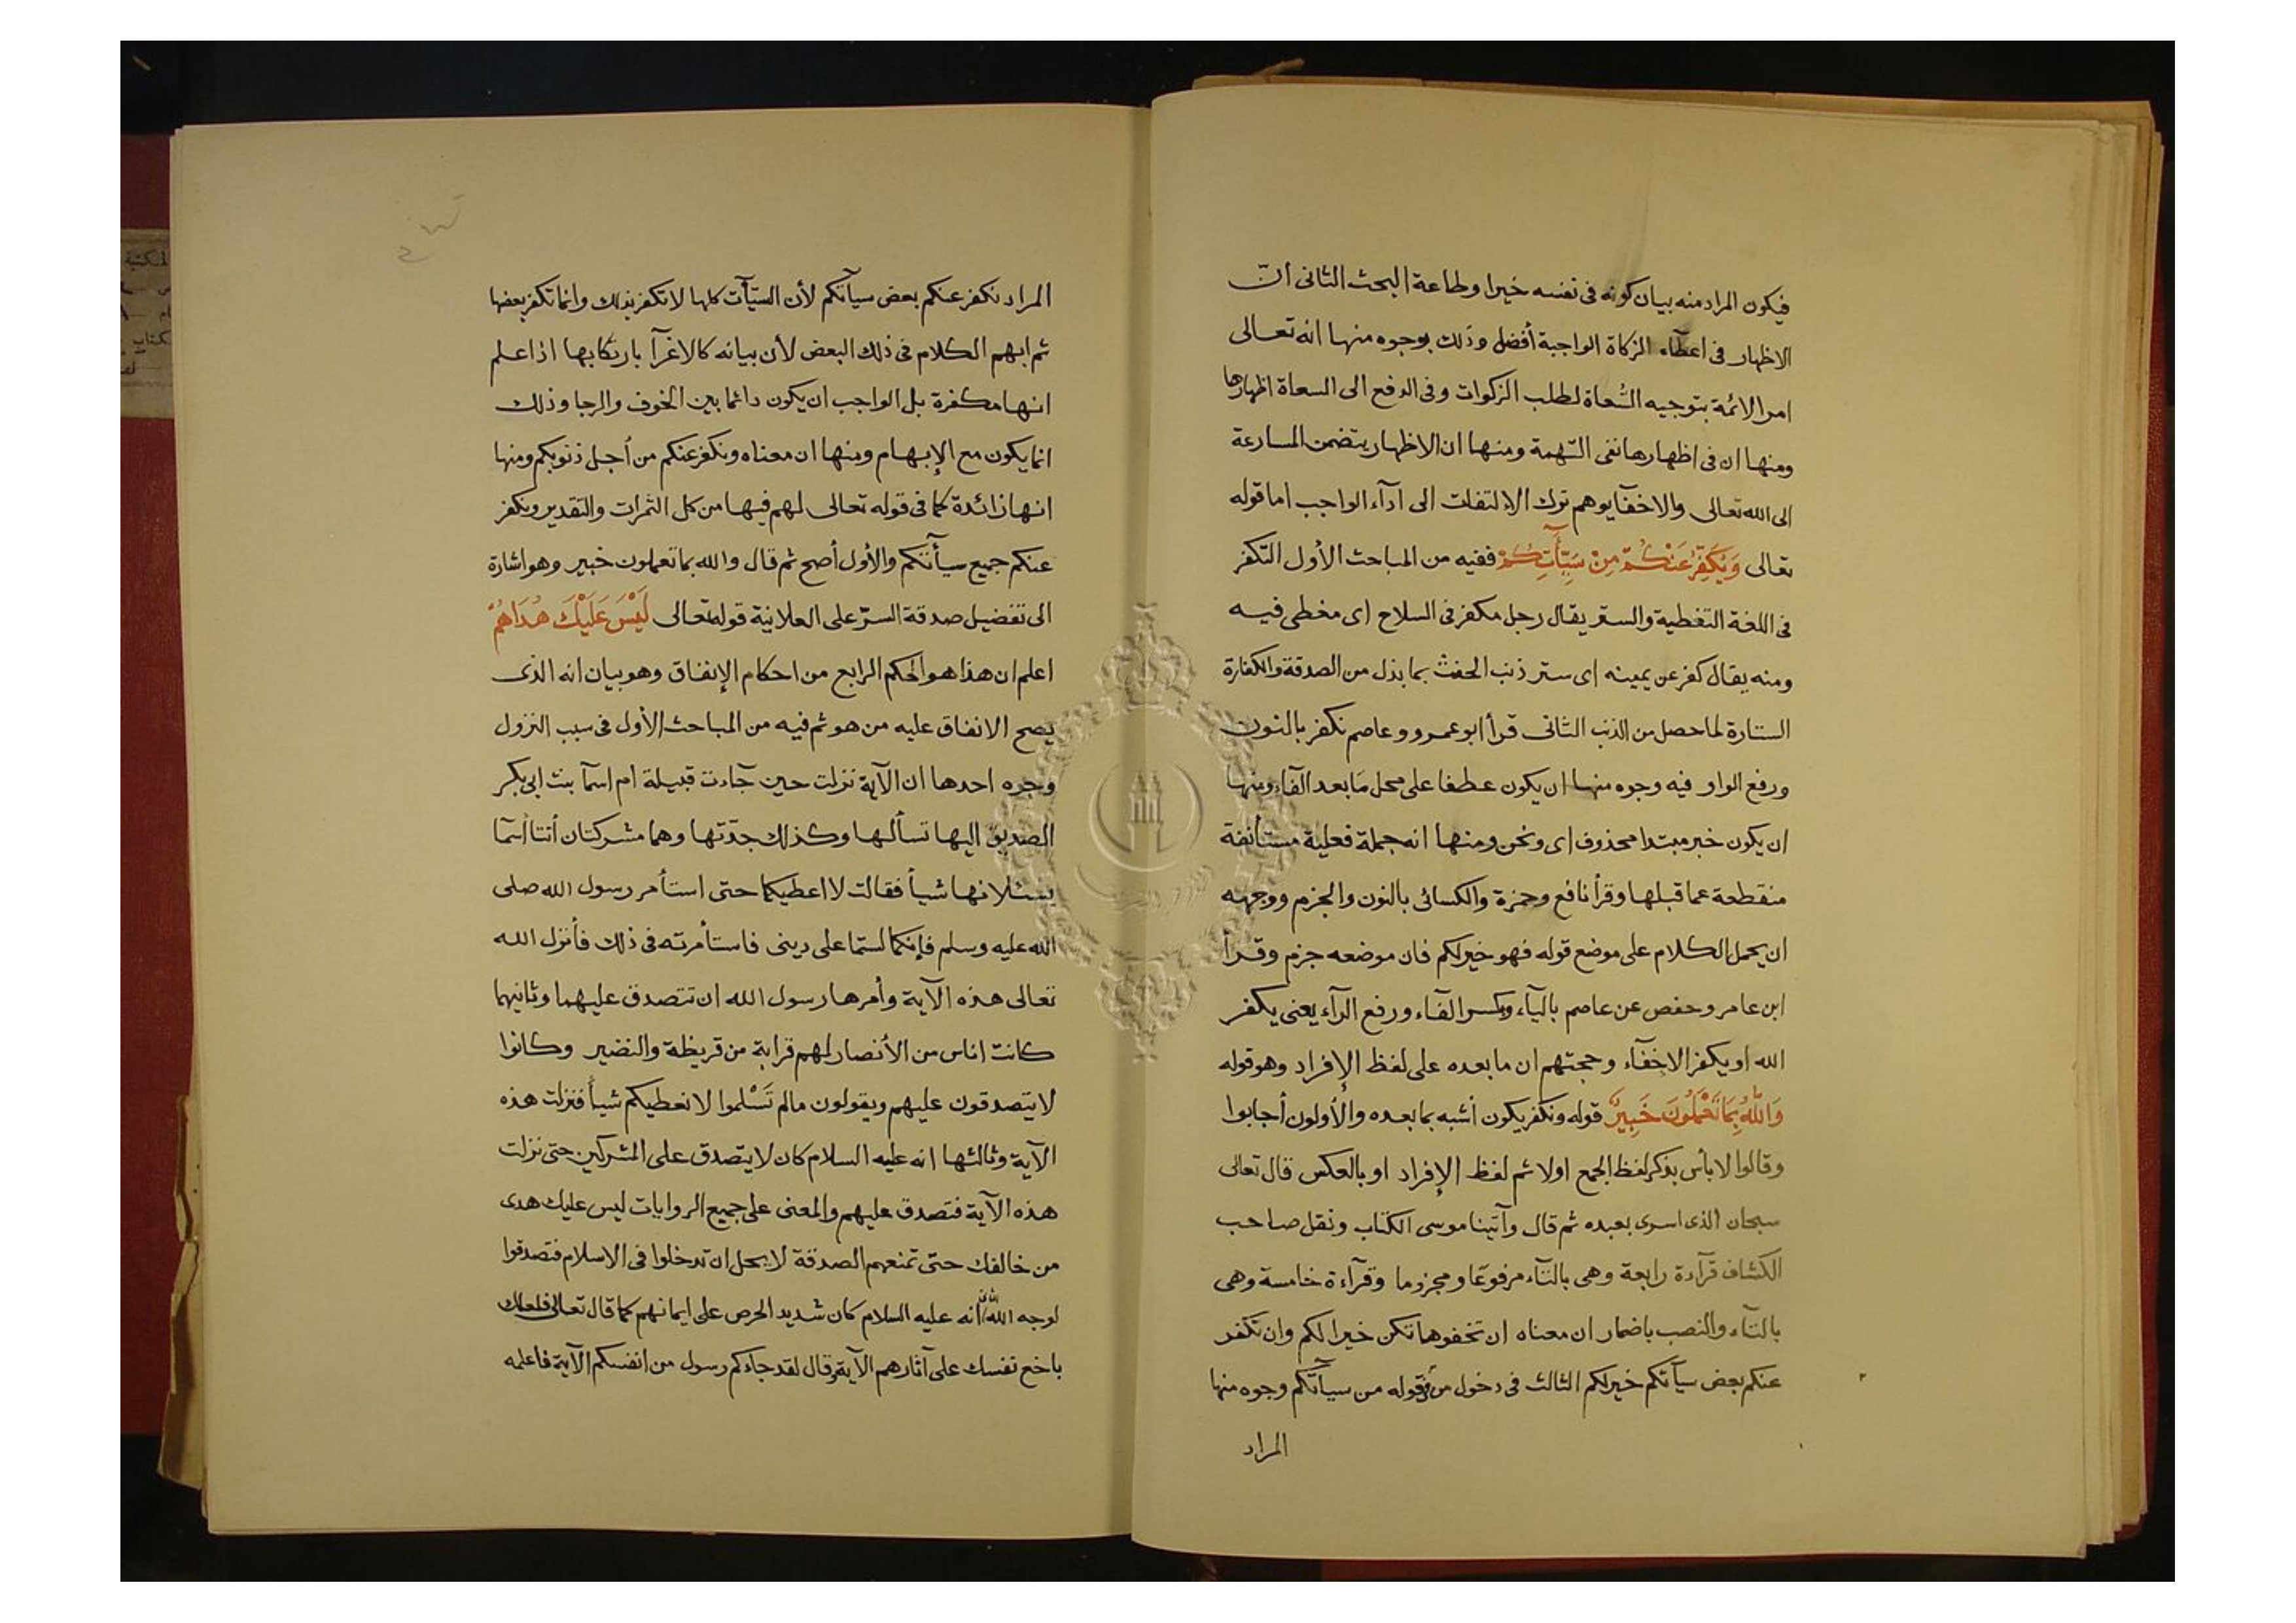 فيكون المراد منه بيان كونه فى نفسه خيرا وطاعة البحث الثانى انّ
الاظهار فى اعطآء الزكاة الواجبة أفضل وذلك بوجوه منها انه تعالى
امر الائمة بتوجيه السُّعاة لطلب الزكوات وفى الدفع الى السعاة اظهارها
ومنها ان فى اظهارها نفى التهمة ومنها ان الاظهار يتضمن المسارعة
الى الله تعالى والاخفآ يوهم ترك الالتفات الى ادآء الواجب اما قوله
تعالى وَيُكَفِّرُ عَنْكُمْ مِنْ سَيِّآتِكُمْ ففيه من المباحث الأول التكفر
فى اللغة التغطية والستر يقال رجل مكفر فى السلاح اى مغطى فيه
ومنه يقال كفر عن يمينه اى ستر ذنب الحنث بما بذل من الصدقة والكفارة
الستارة لما حصل من الذنب الثانى قرأ ابو عمرو وعاصم نكفر بالنون
ورفع الواو فيه وجوه منها ان يكون عطفا على محل مَا بعد الفآء ومنها
ان يكون خبر مبتدا محذوف اى ونحن ومنها انه جملة فعلية مستأنفة
منقطعة عما قبلها وقرأ نافع وحمزة والكسائى بالنون والجزم ووجهه
ان يحمل الكلام على موضع قوله فهو خير لكم فان موضعه جزم وقرأ
ابن عامر وحفص عن عاصم باليآء وبكسر الفآء ورفع الرآء يعنى يكفر
الله او يكفر الاخفآء وحجتهم ان ما بعده على لفظ الإفراد وهو قوله
وَاللّٰهُ بِمَا تَعْمَلُونَ خَبِيرٌ قوله ونكفر يكون أشبه بما بعده والأولون أجابوا
وقالوا لا بأس بذكر لفظ الجمع اولا ثم لفظ الإفراد او بالعكس قال تعالى
سبحان الذى اسرى بعبده ثم قال وآتينا موسى الكتاب ونقل صاحب
الكشاف قرآءة رابعة وهى بالتآء مرفوعًا ومجزوما وقرآءة خامسة وهى
بالتآء والنصب باضمار ان معناه ان تخفوها تكن خيرا لكم وان تكفر
عنكم بعض سيآتكم خير لكم الثالث فى دخول من فى قوله من سيآتكم وجوه منها
المراد
المراد نكفر عنكم بعض سيآتكم لأن السيّآت كلها لا تكفر بذلك وانما تكفر بعضها
ثم ابهم الكلام فى ذلك البعض لأن بيانه كالاغرآ بارتكابها اذا علم
انها مكفرة بل الواجب ان يكون دائما بين الخوف والرجا وذلك
انما يكون مع الإبهام ومنها ان معناه ونكفر عنكم من أجل ذنوبكم ومنها
انها زائدة كما فى قوله تعالى لهم فيها من كل الثمرات والتقدير ونكفر
عنكم جميع سيأتكم والأول أصح ثم قال والله بما تعملون خبير وهو اشارة
الى تفضيل صدقة السرّ على العلانية قوله تعالى لَيْسَ عَلَيْكَ هُدَاهُمْ
اعلم ان هذا هو الحكم الرابع من احكام الإنفاق وهو بيان انه الذى
يصح الانفاق عليه من هو ثم فيه من المباحث الأول فى سبب النزول
وجوه احدها ان الآية نزلت حين جآءت قبيلة ام اسمآ بنت ابى بكر
الصديق اليها تسألها وكذلك جدّتها وهما مشركتان أتتا أسمآ
يسئلانها شيأ فقالت لا اعطيكما حتى استأمر رسول الله صلى
الله عليه وسلم فإنكما لستما على دينى فاستأمرته فى ذلك فأنزل الله
تعالى هذه الآية وأمرها رسول الله ان تتصدق عليهما وثانيهما
كانت اناس من الأنصار لهم قرابة من قريظة والنضير وكانوا
لا يتصدقون عليهم ويقولون مالم تَسْلموا لا نعطيكم شيأ فنزلت هذه
الآية وثالثها انه عليه السلام كان لا يتصدق على المشركين حتى نزلت
هذه الآية فتصدق عليهم والمعنى على جميع الروايات ليس عليك هدى
من خالفك حتى تمنعهم الصدقة لا يحل ان تدخلوا فى الاسلام فتصدقوا
لوجه الله الثانى انه عليه السلام كان شديد الحرص على ايمانهم كما قال تعالى فلعلك
باخع نفسك على آثارهم الآية وقال لقد جاءكم رسول من انفسكم الآية فاعلمه